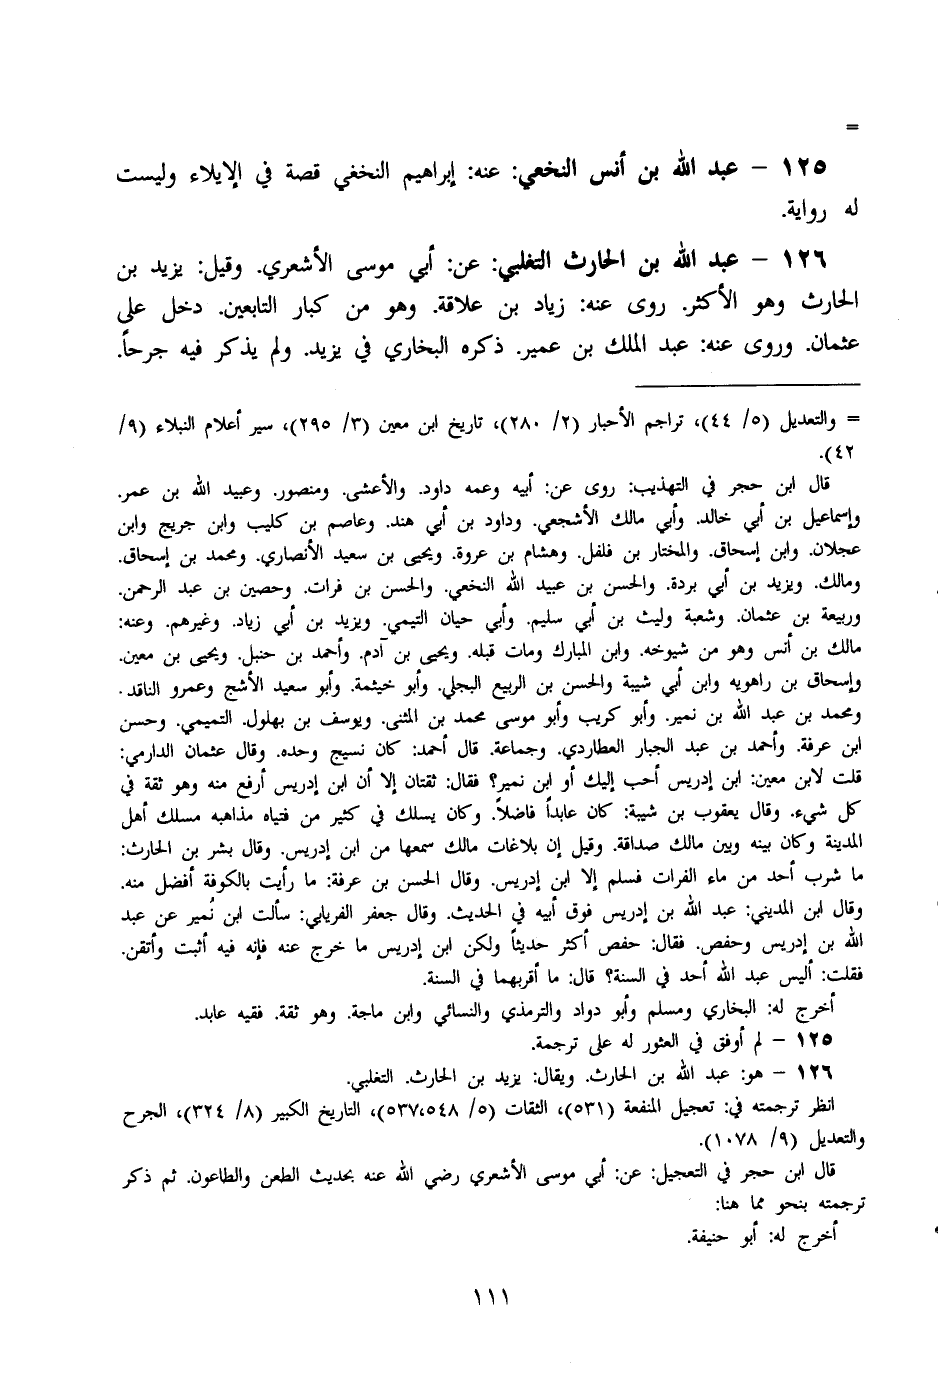 =
١٢٥ – عبد الله بن أنس النخعي: عنه: إبراهيم النخفي قصة في الإيلاء وليست
له رواية.
١٢٦ – عبد الله بن الحارث التغلبي: عن: أبي موسى الأشعري. وقيل: يزيد بن
الحارث وهو الأكثر. روى عنه: زياد بن علاقة. وهو من كبار التابعين. دخل على
عثمان. وروى عنه: عبد الملك بن عمير. ذكره البخاري في يزيد. ولم يذكر فيه جرحاً.
= والتعديل (٥/ ٤٤)، تراجم الأحبار (٢/ ٢٨٠)، تاريخ ابن معين (٣/ ٢٩٥)، سير أعلام النبلاء (٩/
٤٢).
قال ابن حجر في التهذيب: روى عن: أبيه وعمه داود. والأعشى. ومنصور. وعبيد الله بن عمر.
وإسماعيل بن أبي خالد. وأبي مالك الأشجعي. وداود بن أبي هند. وعاصم بن كليب وابن جريج وابن
عجلان. وابن إسحاق. والمختار بن فلفل. وهشام بن عروة. ويحيى بن سعيد الأنصاري. ومحمد بن إسحاق.
ومالك. ويزيد بن أبي بردة. والحسن بن عبيد الله النخعي. والحسن بن فرات. وحصين بن عبد الرحمن.
وربيعة بن عثمان. وشعبة وليث بن أبي سليم. وأبي حيان التيمي. ويزيد بن أبي زياد. وغيرهم. وعنه:
مالك بن أنس وهو من شيوخه. وابن المبارك ومات قبله. ويحيى بن آدم. وأحمد بن حنبل. ويحيى بن معين.
وإسحاق بن راهويه وابن أبي شيبة والحسن بن الربيع البجلي. وأبو خيثمة. وأبو سعيد الأشج وعمرو الناقد.
ومحمد بن عبد الله بن نمير. وأبو كريب وأبو موسى محمد بن المثنى. ويوسف بن بهلول. التميمي. وحسن
ابن عرفة. وأحمد بن عبد الجبار العطاردي. وجماعة. قال أحمد: كان نسيج وحده. وقال عثمان الدارمي:
قلت لابن معين: ابن إدريس أحب إليك أو ابن نمير؟ فقال: ثقتان إلا أن ابن إدريس أرفع منه وهو ثقة في
كل شيء. وقال يعقوب بن شيبة: كان عابداً فاضلاً. وكان يسلك في كثير من فتياه مذاهبه مسلك أهل
المدينة وكان بينه وبين مالك صداقة. وقيل إن بلاغات مالك سمعها من ابن إدريس. وقال بشر بن الحارث:
ما شرب أحد من ماء الفرات فسلم إلا ابن إدريس. وقال الحسن بن عرفة: ما رأيت بالكوفة أفضل منه.
وقال ابن المديني: عبد الله بن إدريس فوق أبيه في الحديث. وقال جعفر الفريابي: سألت ابن نُمير عن عبد
الله بن إدريس وحفص. فقال: حفص أكثر حديثاً ولكن ابن إدريس ما خرج عنه فإنه فيه أثبت وأتقن.
فقلت: أليس عبد الله أحد في السنة؟ قال: ما أقربهما في السنة.
أخرج له: البخاري ومسلم وأبو دواد والترمذي والنسائي وابن ماجة. وهو ثقة. فقيه عابد.
١٢٥ – لم أوفق في العثور له على ترجمة.
١٢٦ – هو: عبد الله بن الحارث. ويقال: يزيد بن الحارث. التغلبي.
انظر ترجمته في: تعجيل المنفعة (٥٣١)، الثقات (٥/ ٥٣٧،٥٤٨)، التاريخ الكبير (٨/ ٣٢٤)، الجرح
والتعديل (٩/ ١٠٧٨).
قال ابن حجر في التعجيل: عن: أبي موسى الأشعري رضي الله عنه بحديث الطعن والطاعون. ثم ذكر
ترجمته بنحو مما هنا:
أخرج له: أبو حنيفة.
١١١